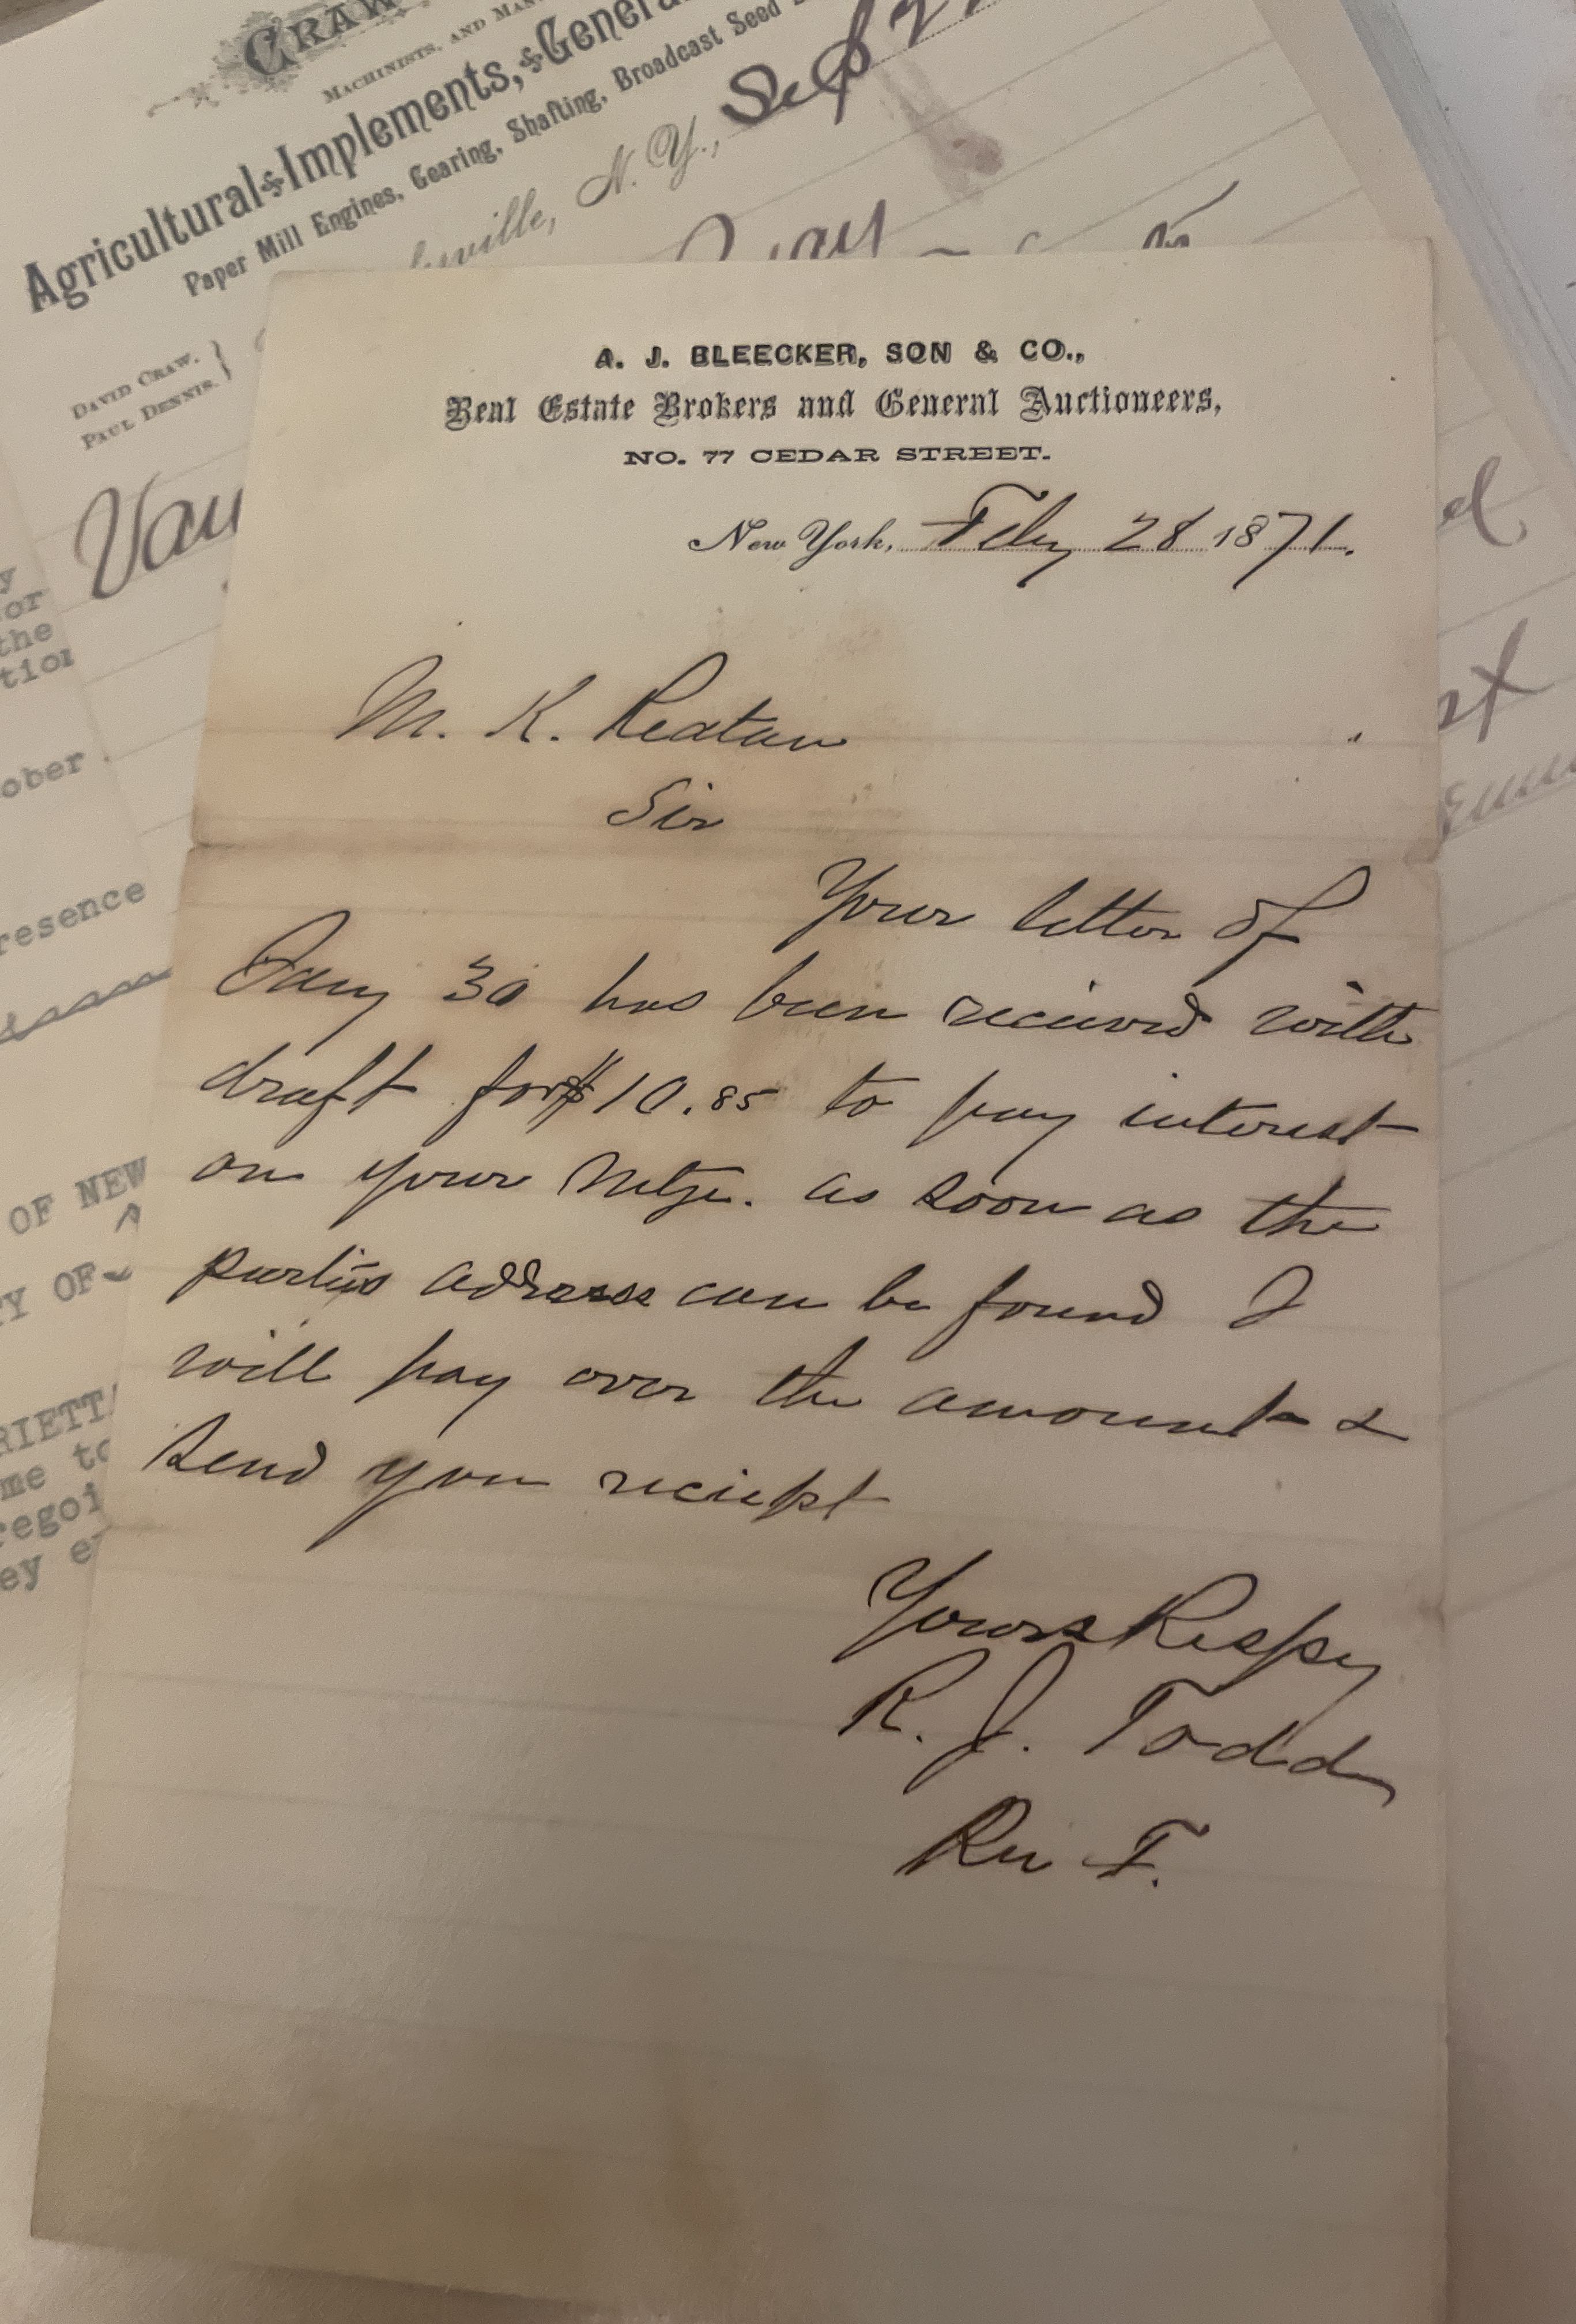 CRAW
MACHINISTS, AND MAN
Agricultural Implements, & General
Paper Mill Engines, Gearing, Shafting, Broadcast Seed
ville, N. Y., Sep
DAVID CRAW.
PAUL DENNIS.
A. J. BLEECKER, SON & CO.,
Real Estate Brokers and General Auctioneers,
NO. 77 CEDAR STREET.
New York, Feby 28 1871.
M. K.
Sir
Your letter of
Jany 30 has been recieved with
draft for $10.85 to pay interest
on your Mtge. as soon as the
parties address can be found I
will pay over the amount &
send you reciept
Yours Respy
R. J. Todd
Van
y
or
the
tion
ober
resence
OF NEW
Y OF
RIETTA
me to
regoi
ey e